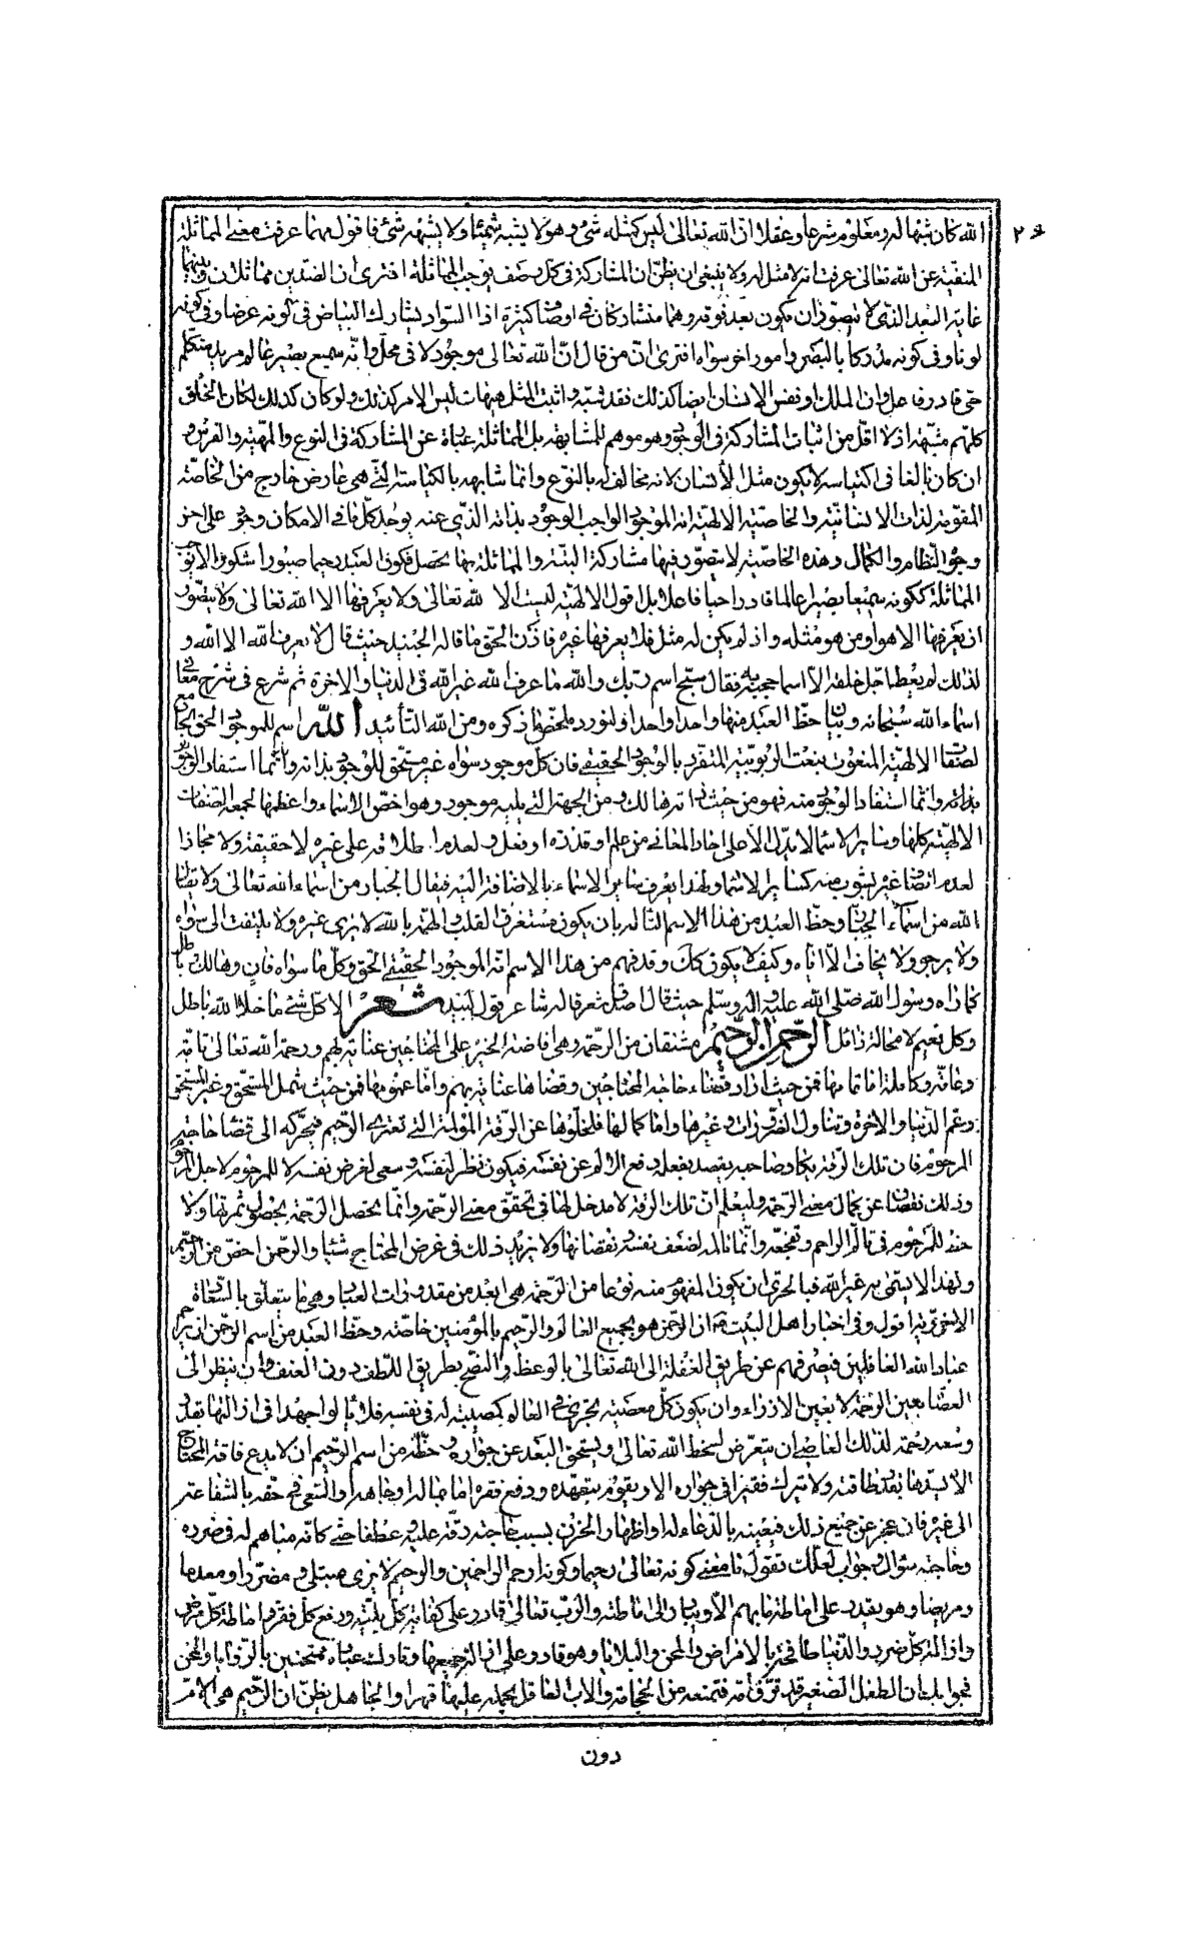 الله كان شبها له ومعلوم شرعا وعقلا ان الله تعالى ليس كمثله شئ وهو لا يشبه شيئا ولا يشبهه شئ فاقول مهما عرفت معنى المماثلة
المنفية عن الله تعالى عرفت انه لا مثل له ولا ينبغي ان يظن ان المشاركة في كل وصف يوجب المماثلة افترى ان الضدين مماثلان وبينهما
غاية البعد الذي لا يتصور ان يكون بعد فوقه وهما متشاركان في اوصاف كثيرة اذ السواد يشارك البياض في كونه عرضا وفي كونه
لونا وفي كونه مدركا بالبصر وامور اخر سواه افترى ان من قال ان الله تعالى موجود لا في محل وانه سميع بصير عالم مريد متكلم
حي قادر فاعل وان الملك او نفس الانسان ايضا كذلك فقد شبه واثبت المثل هيهات ليس الامر كذلك ولو كان كذلك لكان الخلق
كلهم مشبهة اذ لا اقل من اثبات المشاركة في الوجود وهو موهم للمشابهة بل المماثلة عبارة عن المشاركة في النوع والمهية والفرس و
ان كان بالغا في الكياسة لا يكون مثل الانسان لانه مخالف له بالنوع وانما شابهه بالكياسة التي هي عارض خارج من الخاصة
المقومة لذات الانسانية والخاصية الالهية انه الموجود الواجب الوجود بذاته الذي عنه يوجد كل ما في الامكان وجوده على احسن
وجوه النظام والكمال وهذه الخاصية لا يتصور فيها مشاركة البتة والمماثلة بها يحصل فكون العبد رحيما صبورا شكورا لا يوجب
المماثلة ككونه سميعا بصيرا عالما قادرا حيا فاعلا بل اقول الالهية ليست الا لله تعالى ولا يعرفها الا الله تعالى ولا يتصور
ان يعرفها الا هو او من هو مثله واذ لم يكن له مثل فلا يعرفها غيره فاذن الحق ما قاله الجنيد حيث قال لا يعرف الله الا الله و
لذلك لم يعط اجل خلقه الا اسما حجبه به فقال سبح اسم ربك والله ما عرف الله غير الله في الدنيا والاخرة ثم شرع في شرح معاني
اسماء الله سبحانه وبيان حظ العبد منها واحدا واحدا ولنورد ملخص ما ذكره ومن الله التأييد الله اسم للموجود الحق الجامع
لصفات الالهية المنعوت بنعت الربوبية المتفرد بالوجود الحقيقي فان كل موجود سواه غير مستحق للوجود بذاته وانما استفاد الوجود
بذاته وانما استفاد الوجود منه فهو من حيث ذاته هالك ومن الجهة التي يليه موجود وهو اخص الاسماء واعظمها لجمعه الصفات
الالهية كلها وساير الاسماء لا يدل الا على احاد المعاني من علم او قدرة او فعل ولعدم اطلاقه على غيره لا حقيقة ولا مجازا
لعدم اتصاف غيره بشوب منه كساير الاسماء ولهذا يعرف ساير الاسماء بالاضافة اليه فيقال الجبار من اسماء الله تعالى ولا يقال
الله من اسماء الجبار وحظ العبد من هذا الاسم التأله بان يكون مستغرق القلب والهمة بالله لا يرى غيره ولا يلتفت الى سواه
ولا يرجو ولا يخاف الا اياه وكيف لا يكون كك وقد فهم من هذا الاسم انه الموجود الحقيقي الحق وكل ما سواه فان وهالك باطل
كما راه رسول الله صلى الله عليه واله وسلم حيث قال اصدق شعر قاله شاعر قول لبيد شعر الا كل شئ ما خلا الله باطل
وكل نعيم لا محالة زائل الرحمن الرحيم مشتقان من الرحمة وهي افاضة الخير على المحتاجين عناية لهم ورحمة الله تعالى تامة
وعامة وكاملة اما تمامها فمن حيث اراد قضاء حاجة المحتاجين وقضاها عناية بهم واما عمومها فمن حيث شمل المستحق وغير المستحق
وعم الدنيا والاخرة وتناول الضرورات وغيرها واما كمالها فلخلوها عن الرقة المؤلمة التي تعتري الرحيم فيحركه الى قضاء حاجة
المرحوم فان تلك الرقة يكاد صاحبه يقصد بفعله دفع الالم عن نفسه فيكون نظر لنفسه وسعى لغرض نفسه لا للمرحوم لاجل المرحوم
وذلك نقصان عن كمال معنى الرحمة وليعلم ان تلك الرقة لا مدخل لها في تحقق معنى الرحمة وانما يحصل الرحمة بحصول ثمرتها ولا
حظ للمرحوم في تألم الراحم وتفجعه وانما تالمه لضعف نفسه ونقصانها ولا يزيد ذلك في غرض المحتاج شيئا والرحمن اخص من الرحيم
ولهذا لا يسمى به غير الله فبالحري ان يكون المفهوم منه نوعا من الرحمة هي ابعد من مقدورات العباد وهي ما يتعلق بالسعادة
الاخروية اقول وفي اخبار اهل البيت ان الرحمن هو بجميع العالم والرحيم بالمؤمنين خاصة وحظ العبد من اسم الرحمن ان يرحم
عباد الله الغافلين فيصرفهم عن طريق الغفلة الى الله تعالى بالوعظ والنصح بطريق اللطف دون العنف وان ينظر الى
العصاة بعين الرحمة لا بعين الازراء وان يكون كل معصية يجري في العالم كمصيبة له في نفسه فلا يألوا جهدا في ازالتها بقدر
وسعه رحمة لذلك العاصي ان يتعرض لسخط الله تعالى ويستحق البعد عن جواره وحظه من اسم الرحيم ان لا يدع فاقة المحتاج
الا يسدها بقدر طاقته ولا يترك فقيرا في جواره الا ويقوم بتعهده ودفع فقره اما بماله او جاهه او السعي في حقه بالشفاعة
الى غيره فان عجز عن جميع ذلك فيعينه بالدعاء له او اظهار الحزن بسبب حاجته رقة عليه وعطفا حتى كانه مساهم له في ضره
وحاجته سؤال وجواب لعلك تقول ما معنى كونه تعالى رحيما وكونه ارحم الراحمين والرحيم لا يرى مبتلى ومضرورا ومعدما
ومريضا وهو يقدر على اماطة ما بهم الا ويبادر الى اماطته والرب تعالى قادر على كفاية كل بلية ودفع كل فقر واماطة كل مرض
وازالة كل ضرر والدنيا طافحة بالامراض والمحن والبلايا وهو قادر على ازالة جميعها وتارك عباده ممتحنين بالرزايا والمحن
فجوابك ان الطفل الصغير قد ترق له امه فتمنعه من الحجامة والاب العاقل يحمله عليها قهرا والجاهل يظن ان الرحيم هي الام
دون